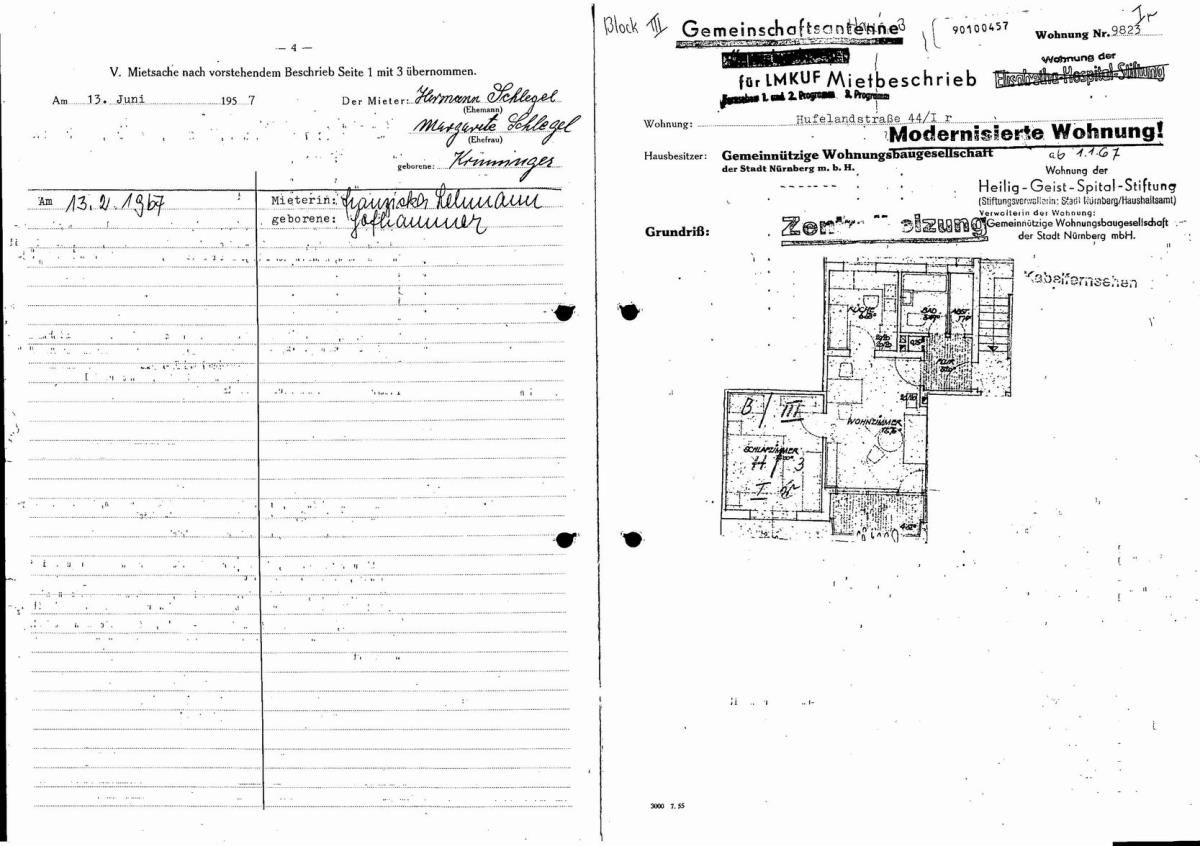 — 4 —
V. Mietsache nach vorstehendem Beschrieb Seite 1 mit 3 übernommen.
Am 13. Juni 195 7
Der Mieter: Hermann Schlegel
(Ehemann)
Margarete Schlegel
(Ehefrau)
geborene: Krinninger
Am 13.2.1967
Mieterin: Franziska Lehmann
geborene: Hofhammer
Block III
Gemeinschaftsantenne
Haus 3
90100457
I r
Wohnung Nr. 9823
für LMKUF Mietbeschrieb
Fernsehen 1. und 2. Programm 3. Programm
Wohnung der
Elisabetha-Hospital-Stiftung
Wohnung: Hufelandstraße 44/I r
Modernisierte Wohnung!
ab 1.1.67
Hausbesitzer: Gemeinnützige Wohnungsbaugesellschaft
der Stadt Nürnberg m. b. H.
Wohnung der
Heilig-Geist-Spital-Stiftung
(Stiftungsverwalterin: Stadt Nürnberg/Haushaltsamt)
Verwalterin der Wohnung:
Gemeinnützige Wohnungsbaugesellschaft
der Stadt Nürnberg mbH.
Grundriß:
Kabelfernsehen
KÜCHE
BAD
ABST.
FLUR
WOHNZIMMER
B / III
SCHLAFZIMMER
H / 3
I r
3000 7. 55